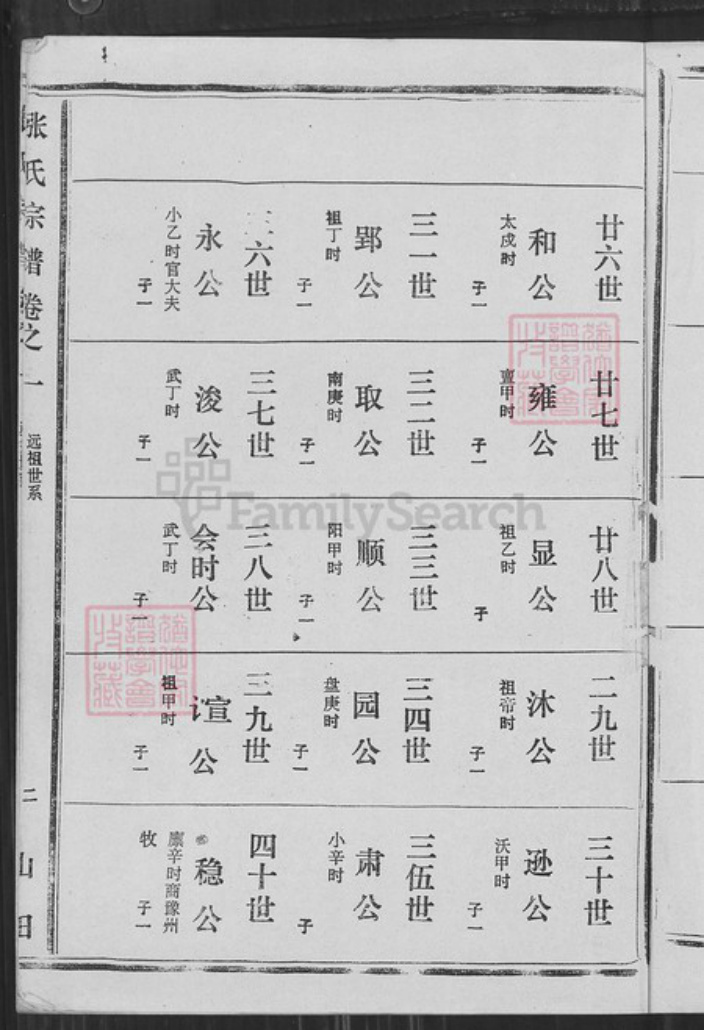 张氏宗谱卷之一
远祖世系
二
山田
廿六世
和公
太戍时
子一
廿七世
雍公
亶甲时
子一
廿八世
显公
祖乙时
子
二九世
沐公
祖帝时
子一
三十世
逊公
沃甲时
子一
三一世
郢公
祖丁时
子一
三二世
取公
南庚时
子一
三三世
顺公
阳甲时
子一
三四世
园公
盘庚时
子一
三伍世
肃公
小辛时
子
三六世
永公
小乙时官大夫
子一
三七世
浚公
武丁时
子一
三八世
会时公
武丁时
子一
三九世
谊公
祖甲时
子一
四十世
稳公
廪辛时商豫州
牧
子一
FamilySearch